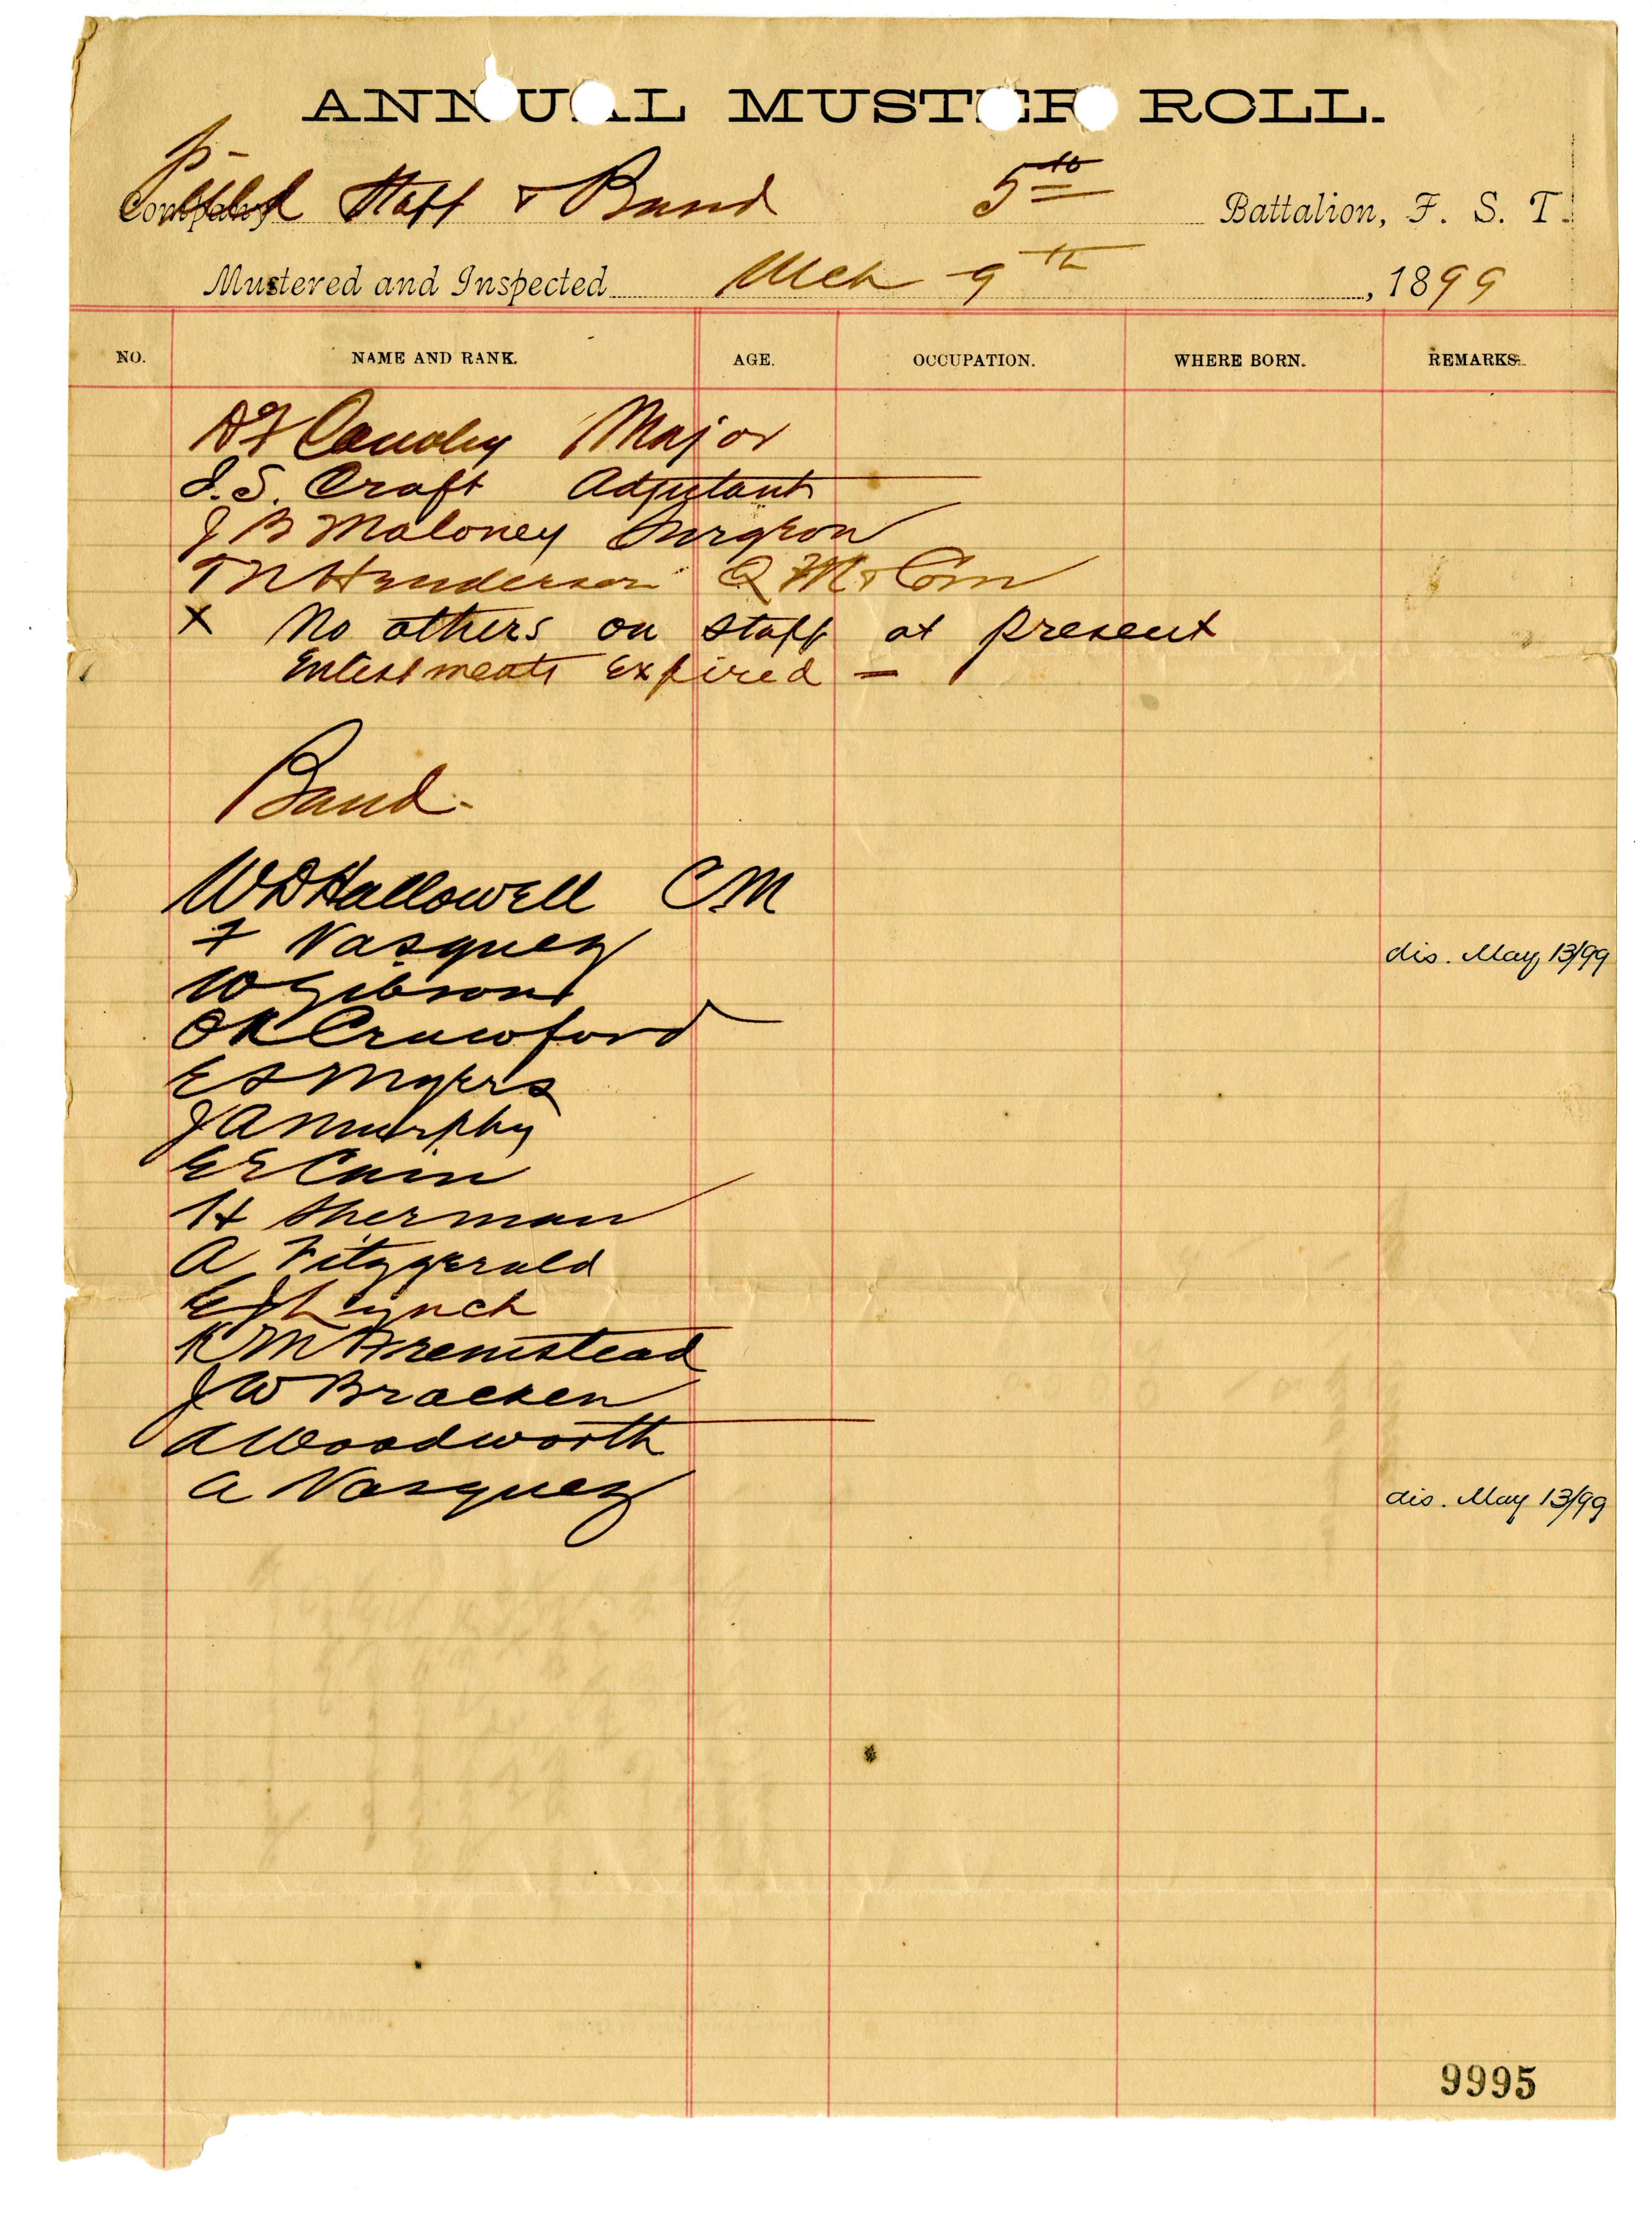 ANNUAL MUSTER ROLL.
Company Field Staff & Band 5th Battalion, F. S. T.
Mustered and Inspected Mch 9th, 1899
NO. NAME AND RANK. AGE. OCCUPATION. WHERE BORN. REMARKS.
Major
J. S. Craft Adjutant
J B Maloney Surgeon
T N Henderson Q M & Com
X No others on staff at present
Enlistments Expired =
Band-
W D Hallowell C M
F Vasquez dis. May 13/99
W Gibson
O K Crawford
E S Myers
J A Murphy
E E Cain
H Sherman
A Fitzgerald
E J Lynch
K M Fremstead
J W Bracken
A Woodworth
A Vasquez dis. May 13/99
9995